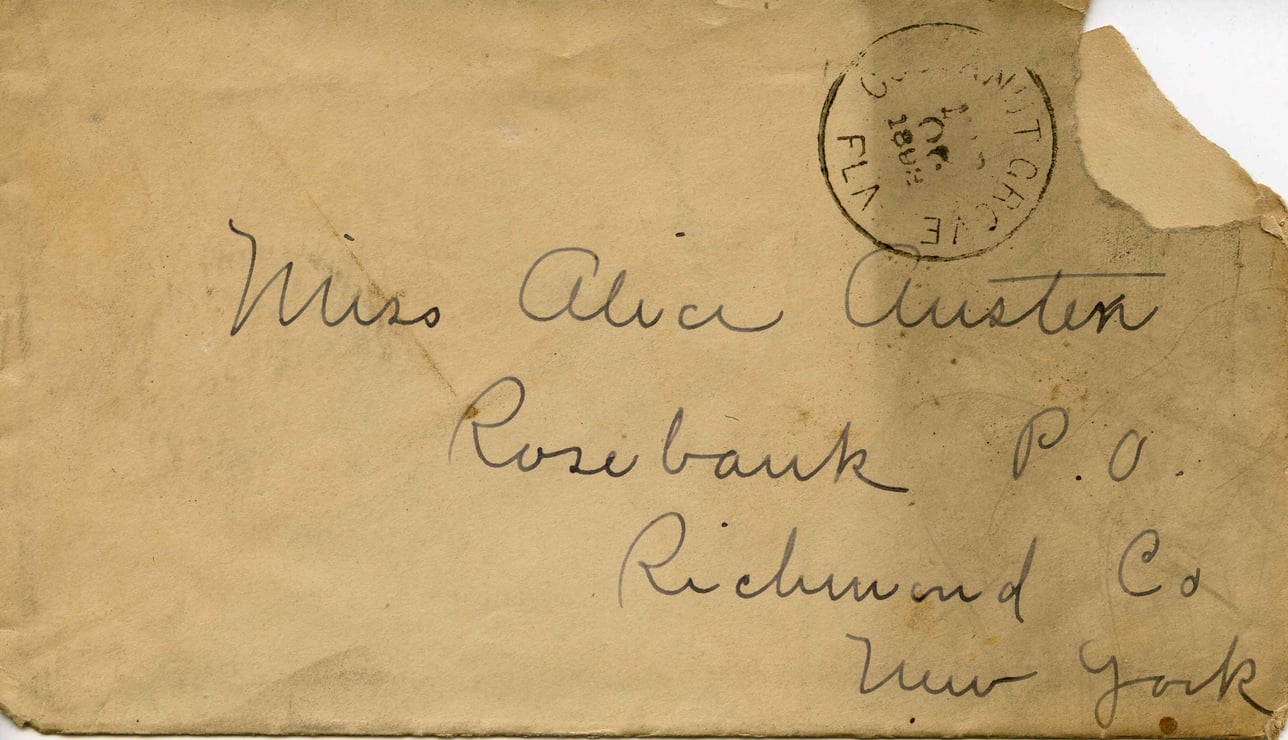 NUT GROVE
FLA
Miss Alice Austen
Rosebank P.O.
Richmond Co
New York